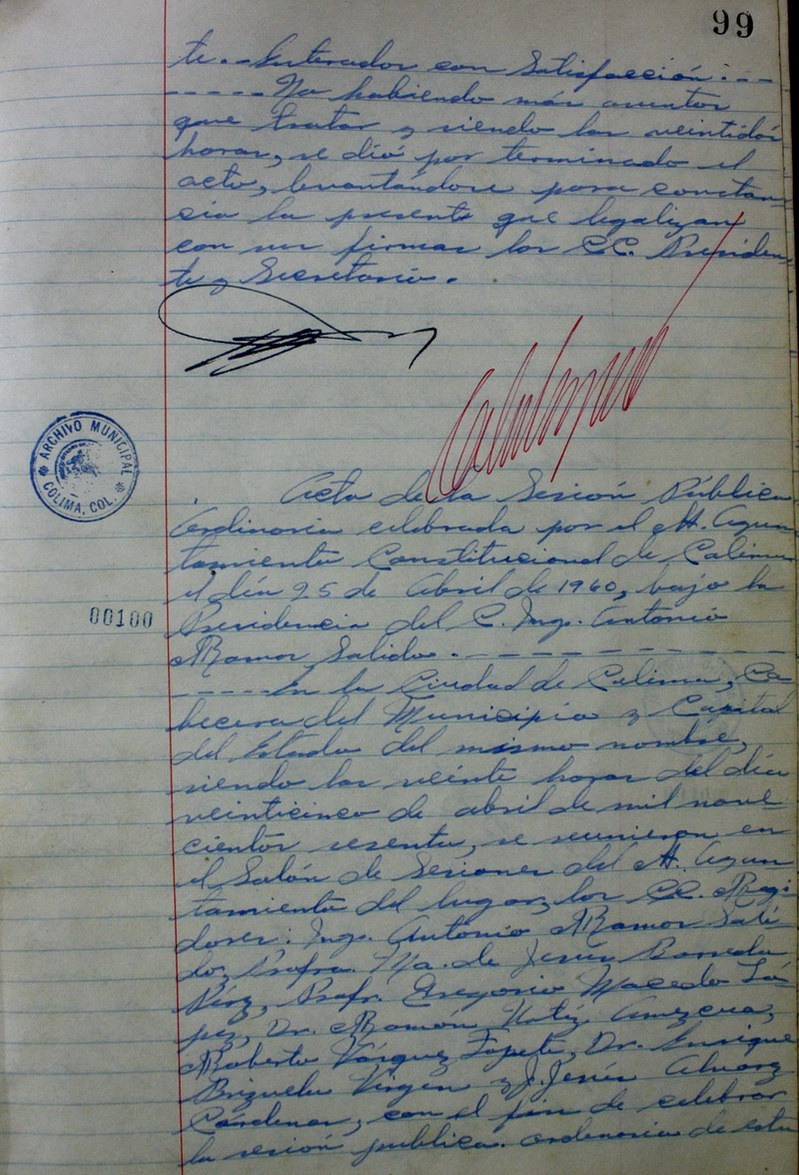 99
te.- Enterados con Satisfacción.---
-----No habiendo más asuntos
que tratar y siendo las veintidós
horas, se dió por terminado el
acto, levantándose para constan-
cia la presente que legalizan
con sus firmas los CC. Presiden-
te y Secretario.
ARCHIVO MUNICIPAL
COLIMA, COL.
Acta de la Sesión Pública
Ordinaria celebrada por el H. Ayun
tamiento Constitucional de Colima
el día 25 de Abril de 1960, bajo la
00100
Presidencia del C. Ing. Antonio
Ramos Salido.-------------
-----En la Ciudad de Colima, Ca-
becera del Municipio y Capital
del Estado del mismo nombre,
siendo las veinte horas del día
veinticinco de abril de mil nove
cientos sesenta, se reunieron en
el Salón de Sesiones del H. Ayun
tamiento del lugar, los CC. Regi
dores: Ing. Antonio Ramos Sali-
do, Profra. Ma. de Jesús Barreda
Pérez, Profr. Gregorio Macedo Ló-
pez, Dr. Ramón Ortiz Amezcua,
Roberto Vázquez Topete, Dr. Enrique
Brizuela Virgen y J. Jesús Alvarez
Cárdenas, con el fin de celebrar
la sesión publica ordinaria de esta